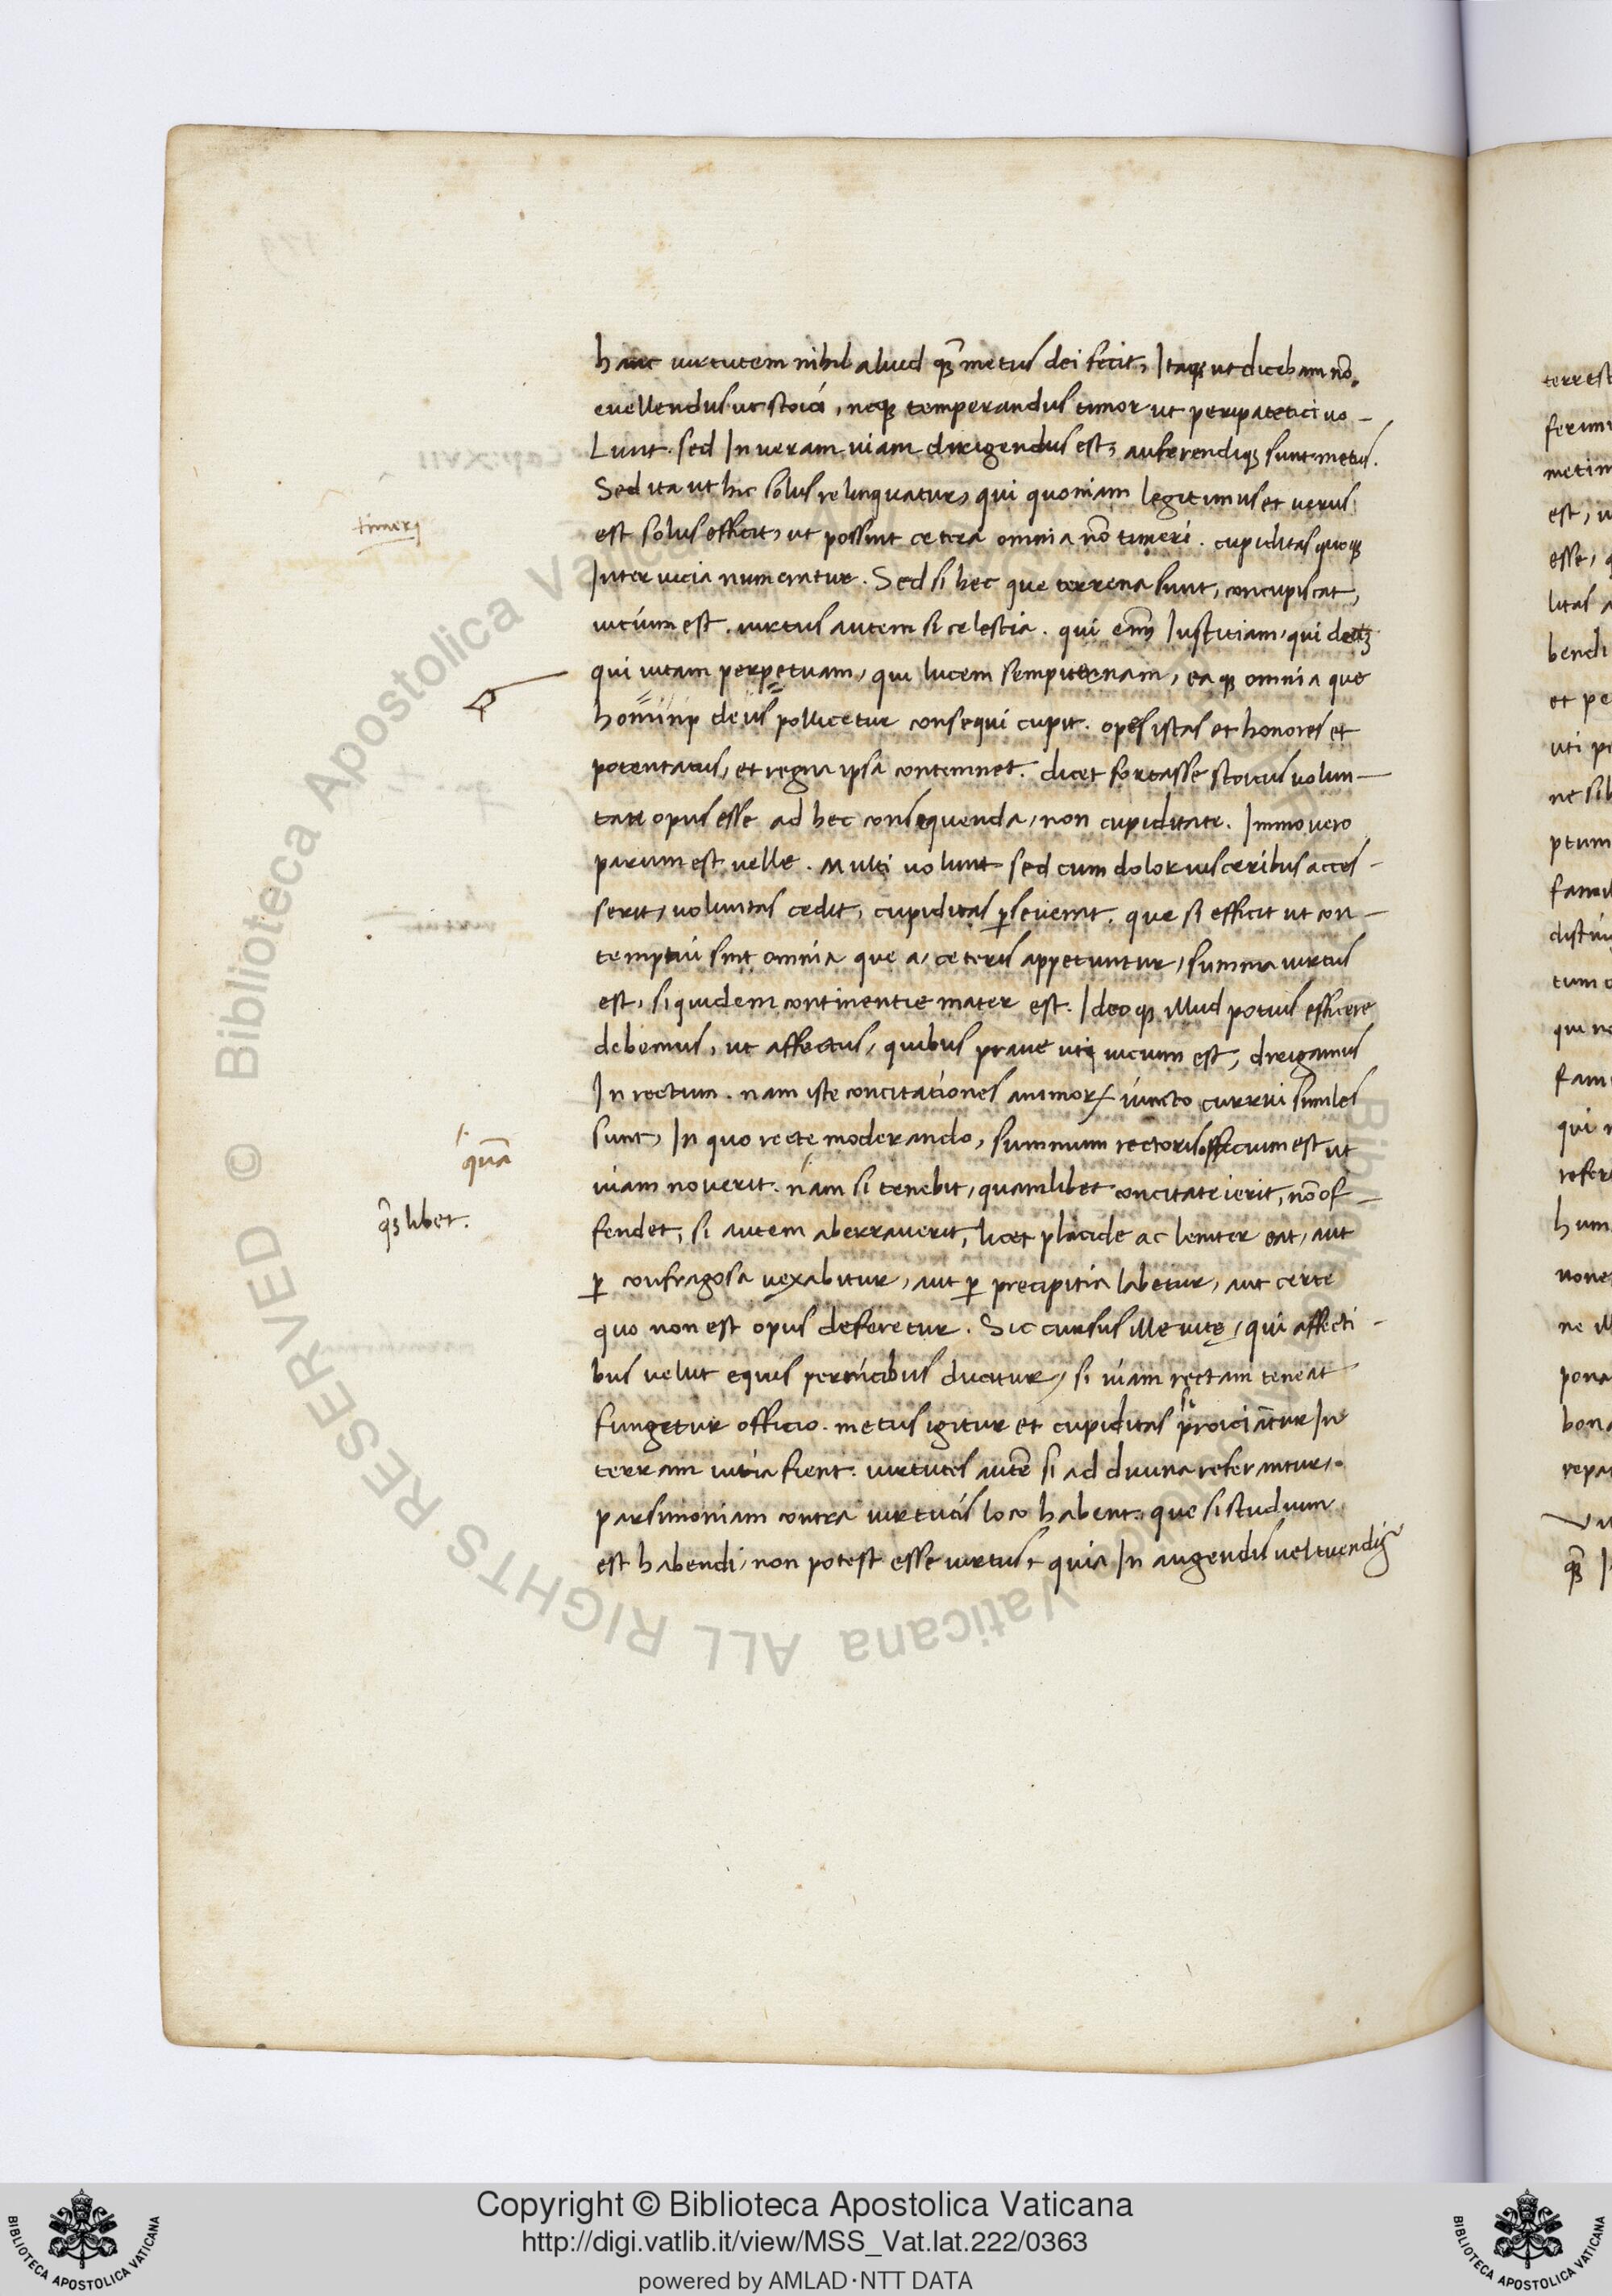 hanc uirtutem nihil aliud q̄ꝫ metus dei fecit, Itaqꝫ ut dicebam nō
euellendus ut stoici, neqꝫ temperandus timor ut peripatetici uo-
Lunt. sed In ueram uiam dirigendus est, auferendiqꝫ sunt metus.
Sed ita ut hic solus relinquatur, qui quoniam legitimus et uerus
est solus efficit, ut possint cetera omnia nō timeri. cupiditas quoqꝫ
Inter uicia numeratur. Sed si hec que terrena sunt, concupiscat,
uicium est. uirtus autem si celestia. qui enim Iustitiam, qui deum
qui uitam perpetuam, qui lucem sempiternam, eaqꝫ omnia que
homini deus pollicetur consequi cupit. opes istas et honores et
potentatus, et regna ipsa contemnet. dicet fortasse stoicus volun-
tate opus esse ad hec consequenda, non cupiditate. Immo uero
parum est uelle. Multi uolunt sed cum dolor uisceribus acces-
serit, uoluntas cedit, cupiditas ꝑseuerat. que si efficit ut con-
temptui sint omnia que a, ceteris appetuntur, summa uirtus
est, siquidem continentie mater est. Ideoqꝫ illud potius efficere
debemus, ut affectus, quibus praue uti uicium est, dirigamus
In rectum. nam iste concitationes animoꝝ iuncto currui similes
sunt, In quo recte moderando, summum rectoris officium est ut
uiam nouerit. nam si tenebit, quamlibet concitate ierit, nō of-
fendet, si autem aberrauerit, licet placide ac leniter eat, aut
ꝑ confragosa uexabitur, aut ꝑ precipitia labetur, aut certe
quo non est opus deferetur. Sic cursus ille uitę, qui affecti-
bus uelut equis pernicibus ducitur, si uiam rectam teneat
fungetur officio. metus igitur et cupiditas si proiciātur In
terram uitia fient. uirtutes autē si ad diuina referantur.
parsimoniam contra uirtutis loco habent. que si studium
est habendi, non potest esse uirtus, quia In augendis uel tuendis
timeri
quā
q̄ꝫ libet.
Copyright © Biblioteca Apostolica Vaticana
http://digi.vatlib.it/view/MSS_Vat.lat.222/0363
powered by AMLAD·NTT DATA
BIBLIOTECA APOSTOLICA VATICANA
BIBLIOTECA APOSTOLICA VATICANA
© Biblioteca Apostolica Vaticana ALL RIGHTS RESERVED